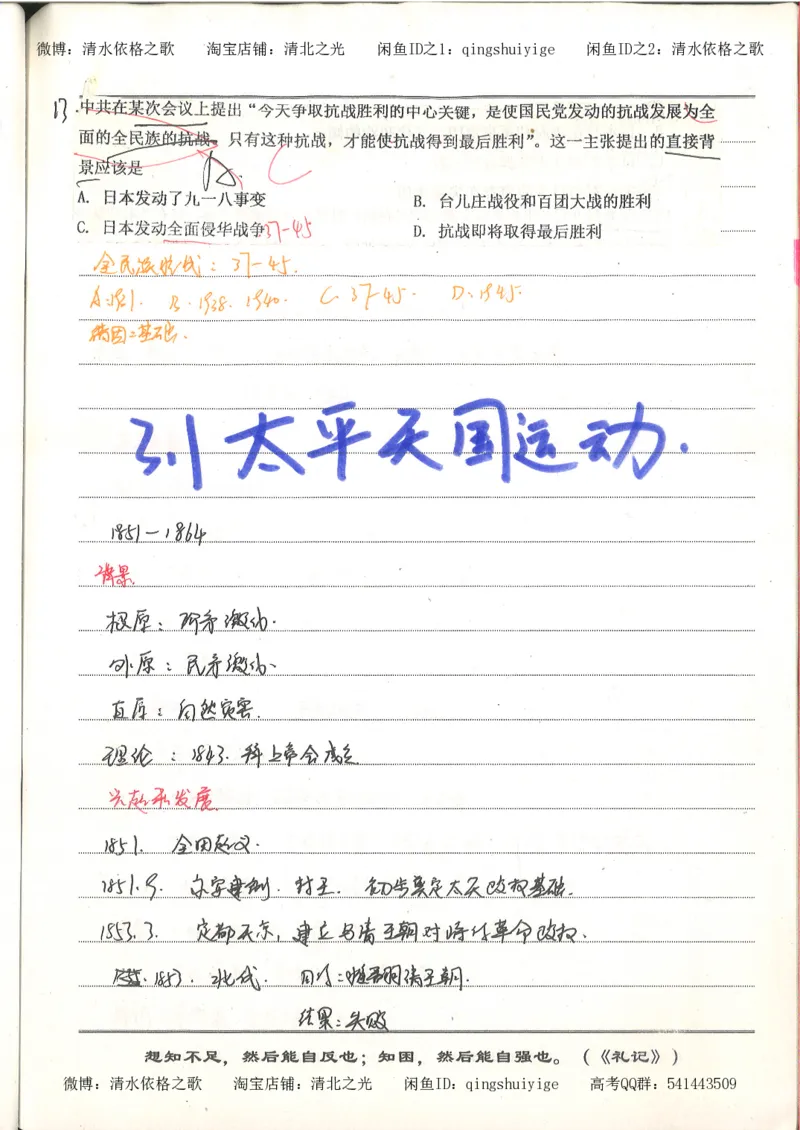 微博：清水依格之歌 淘宝店铺：清北之光 闲鱼ID之1：qingshuiyige 闲鱼ID之2：清水依格之歌
13.中共在某次会议上提出“今天争取抗战胜利的中心关键，是使国民党发动的抗战发展为全
面的全民族的抗战。只有这种抗战，才能使抗战得到最后胜利”。这一主张提出的直接背
景应该是
A. C
A. 日本发动了九一八事变 B. 台儿庄战役和百团大战的胜利
C. 日本发动全面侵华战争37-45 D. 抗战即将取得最后胜利
全民族抗战：37-45.
A.1931. B.1938. 1940. C.37-45. D.1945.
31太平天国运动.
1851-1864
背景
根原：阶矛激化.
外原：民矛激化.
直原：自然灾害.
理论：1843. 拜上帝会成立
兴起和发展
1851. 金田起义.
1851.9. 永安建制. 封王. 初步奠定太天政权基础.
1853.3. 定都天京，建立与清王朝对峙的革命政权.
1853. 北伐. 目的：推翻清王朝.
结果：失败
想知不足，然后能自反也；知困，然后能自强也。（《礼记》）
微博：清水依格之歌 淘宝店铺：清北之光 闲鱼ID：qingshuiyige 高考QQ群：541443509